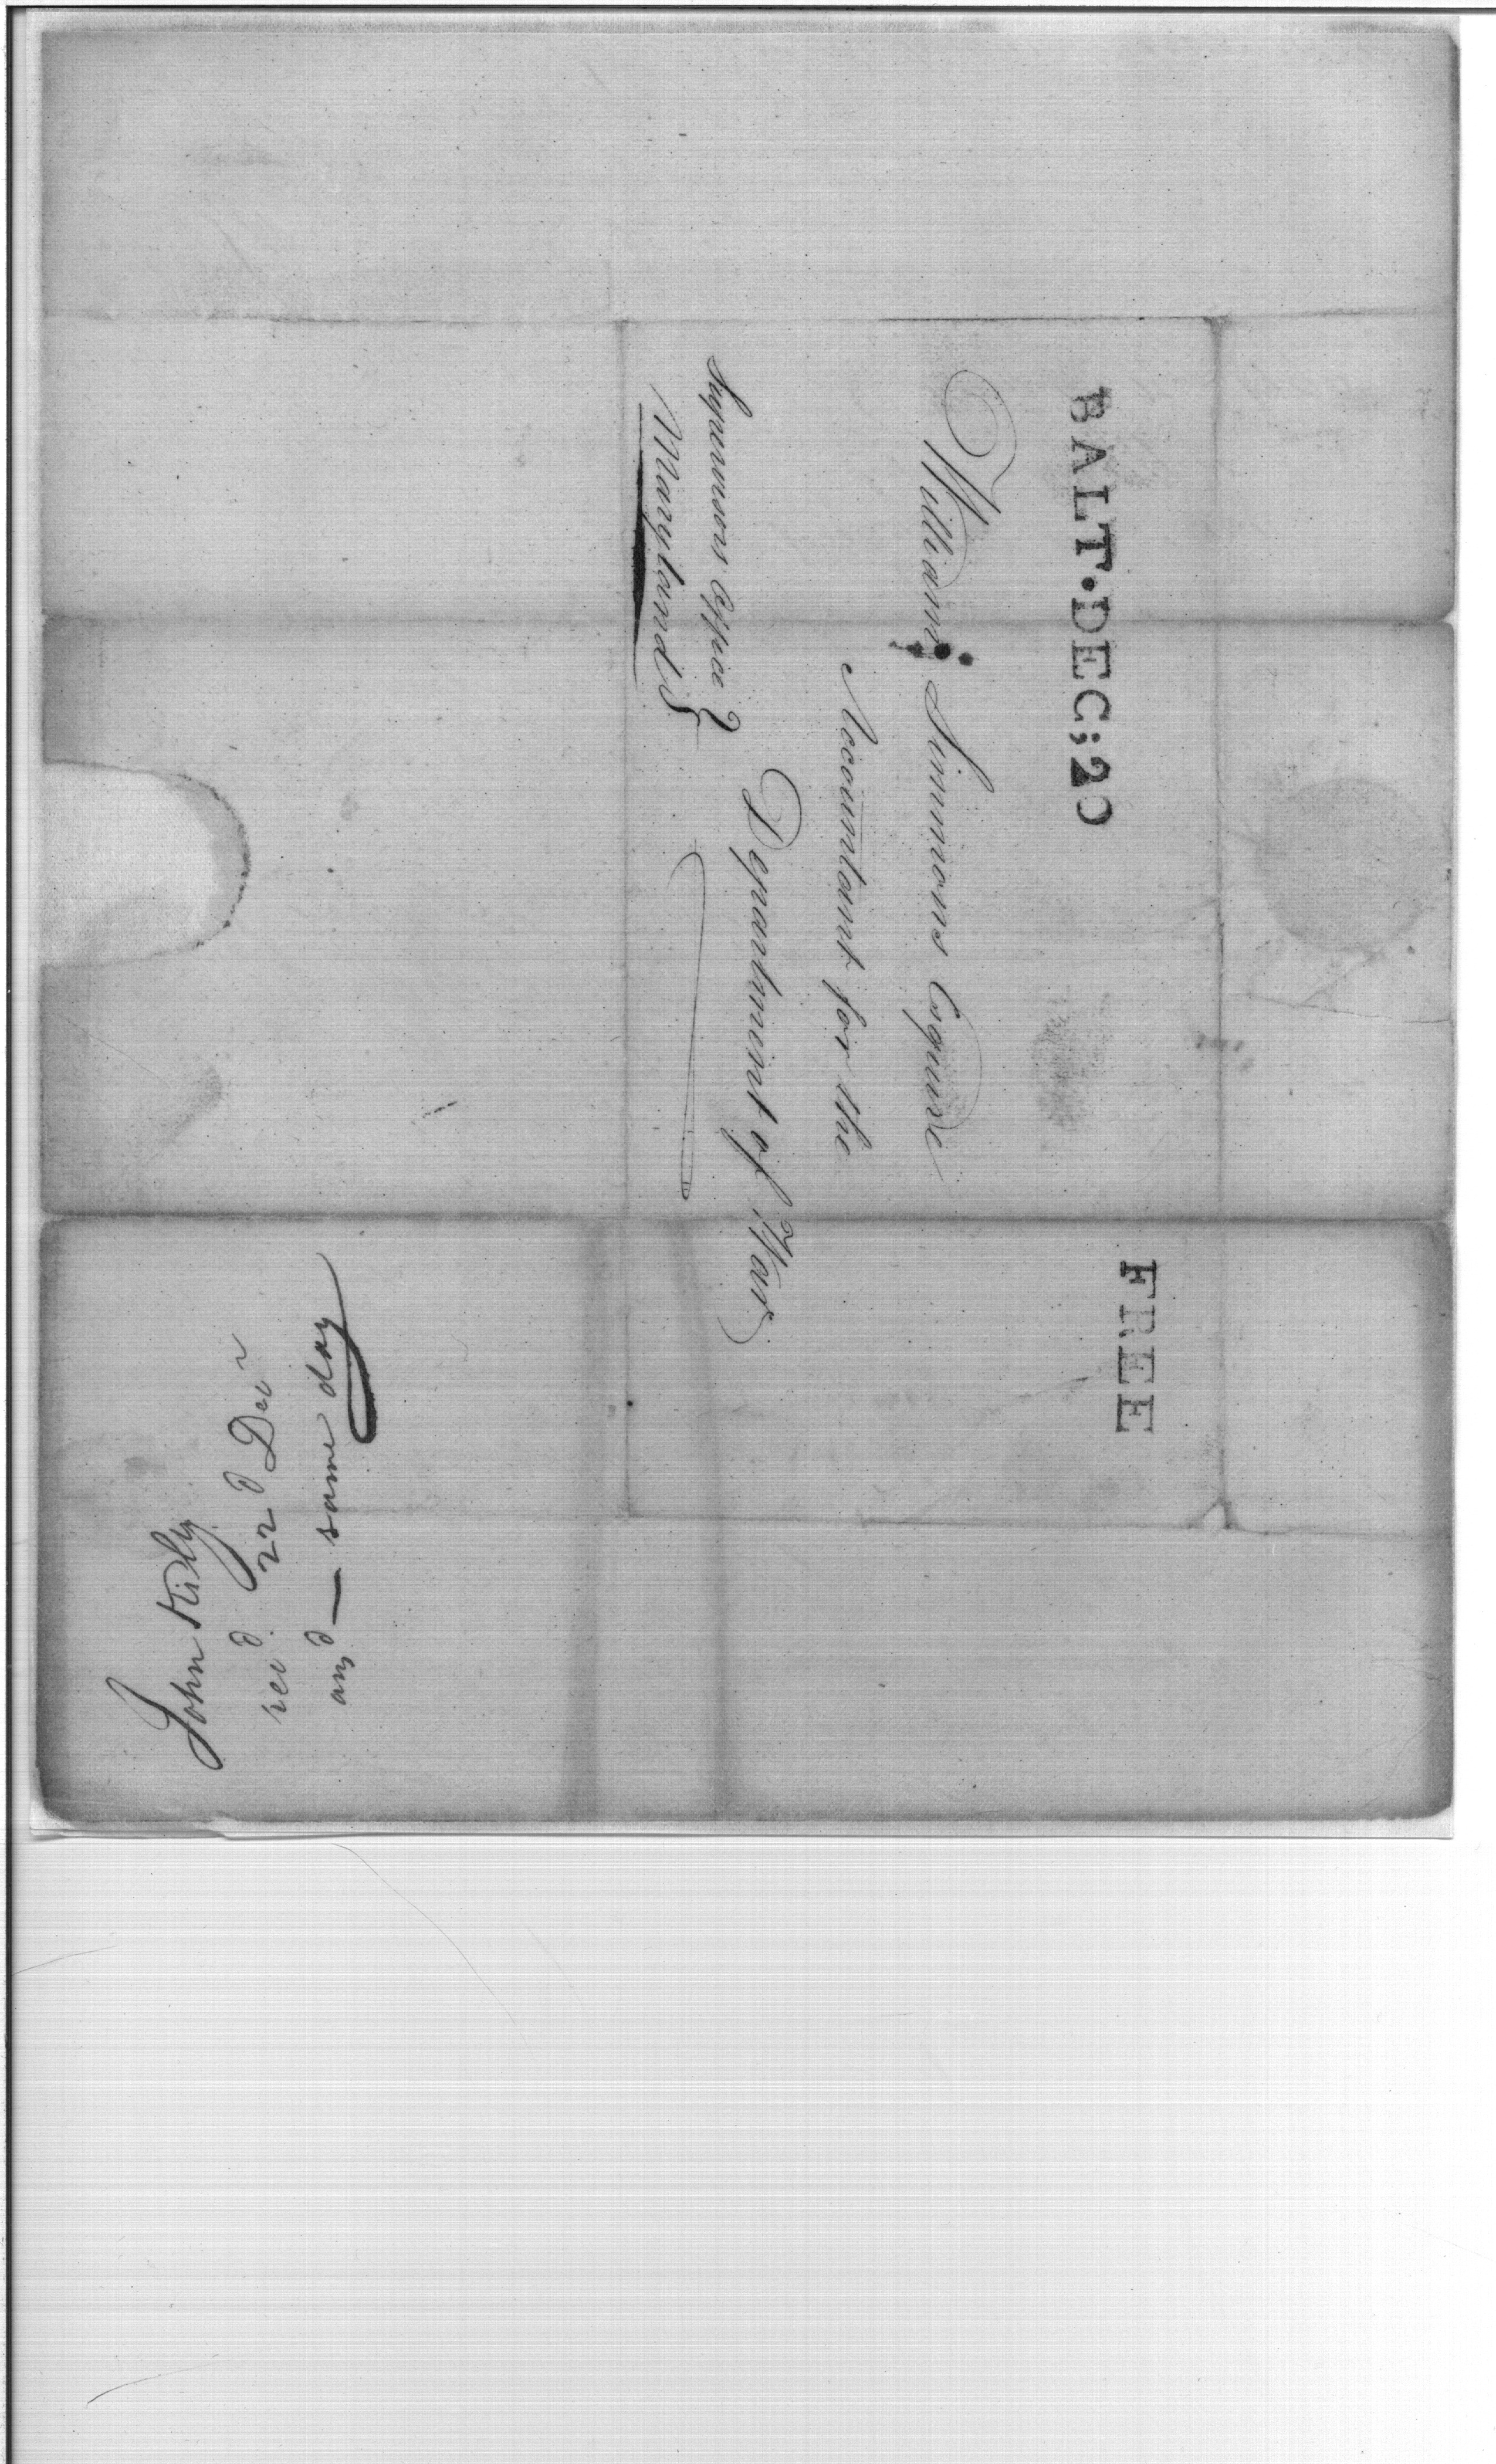 BALT•DEC;20
FREE
William Simmons Esquire
Accountant for the
Department of War
Supervisors Office
Maryland
John Kilty
recd. 22d Decr
ansd — same day